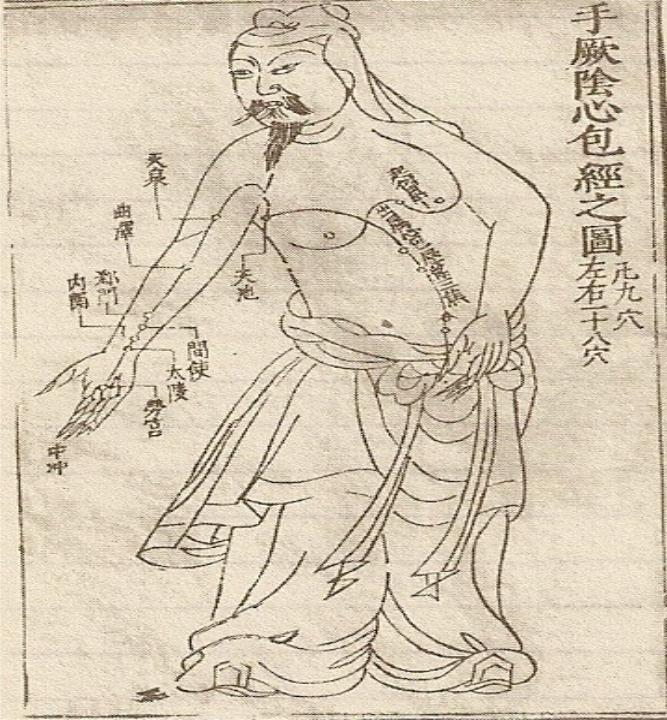 手厥陰心包經之圖
凢九穴
左右一十八穴
天泉
曲澤
郄門
內關
天池
間使
太陵
勞宮
中冲